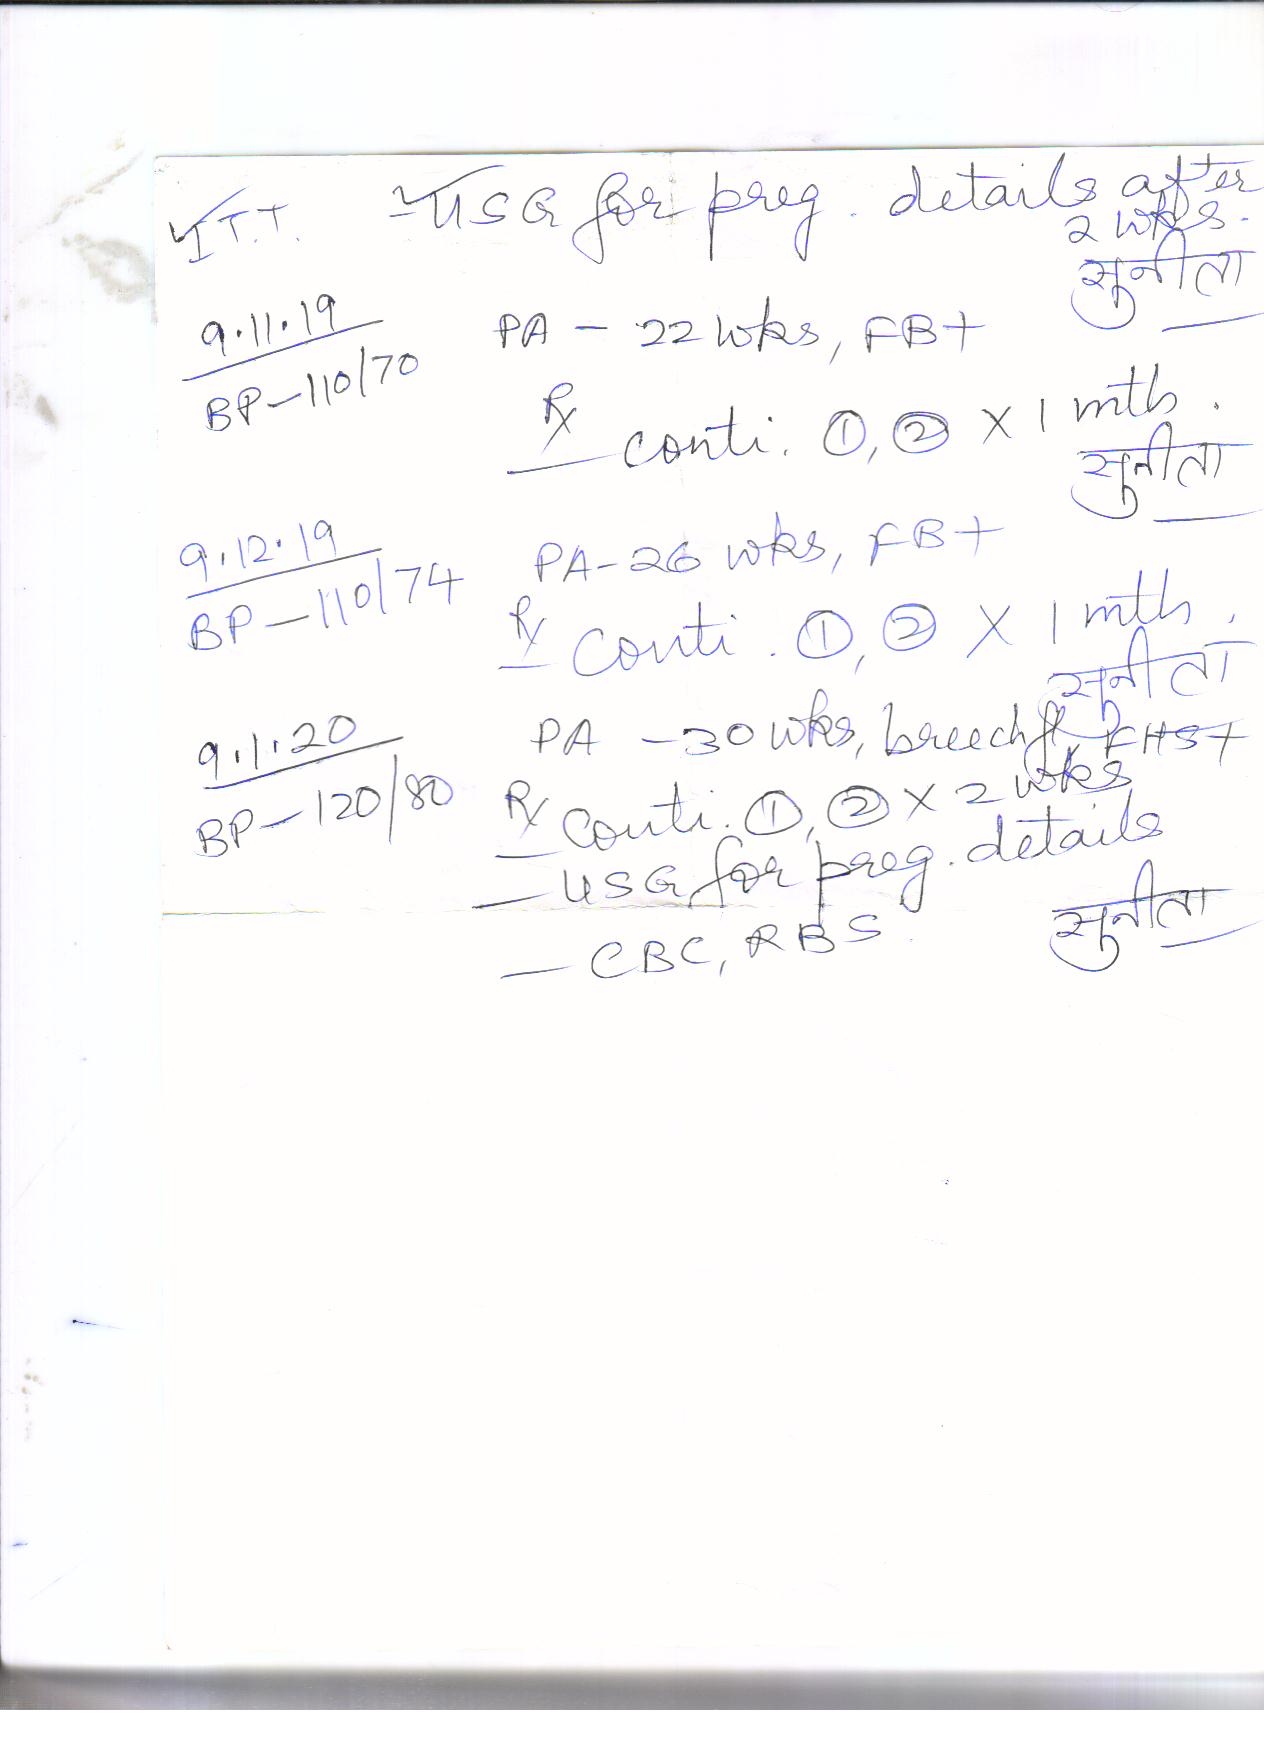 I T.T. - USG for preg. details after
2 wks.
सुनीता
9.11.19 PA - 22 wks, FB+
BP - 110/70
Rx conti. ①, ② X 1 mth.
सुनीता
9.12.19 PA - 26 wks, FB+
BP - 110/74
Rx conti. ①, ② X 1 mth.
सुनीता
9.1.20 PA - 30 wks, breech, FHS+
BP - 120/80
Rx conti. ①, ② X 2 wks
- USG for preg. details
सुनीता
- CBC, RBS.